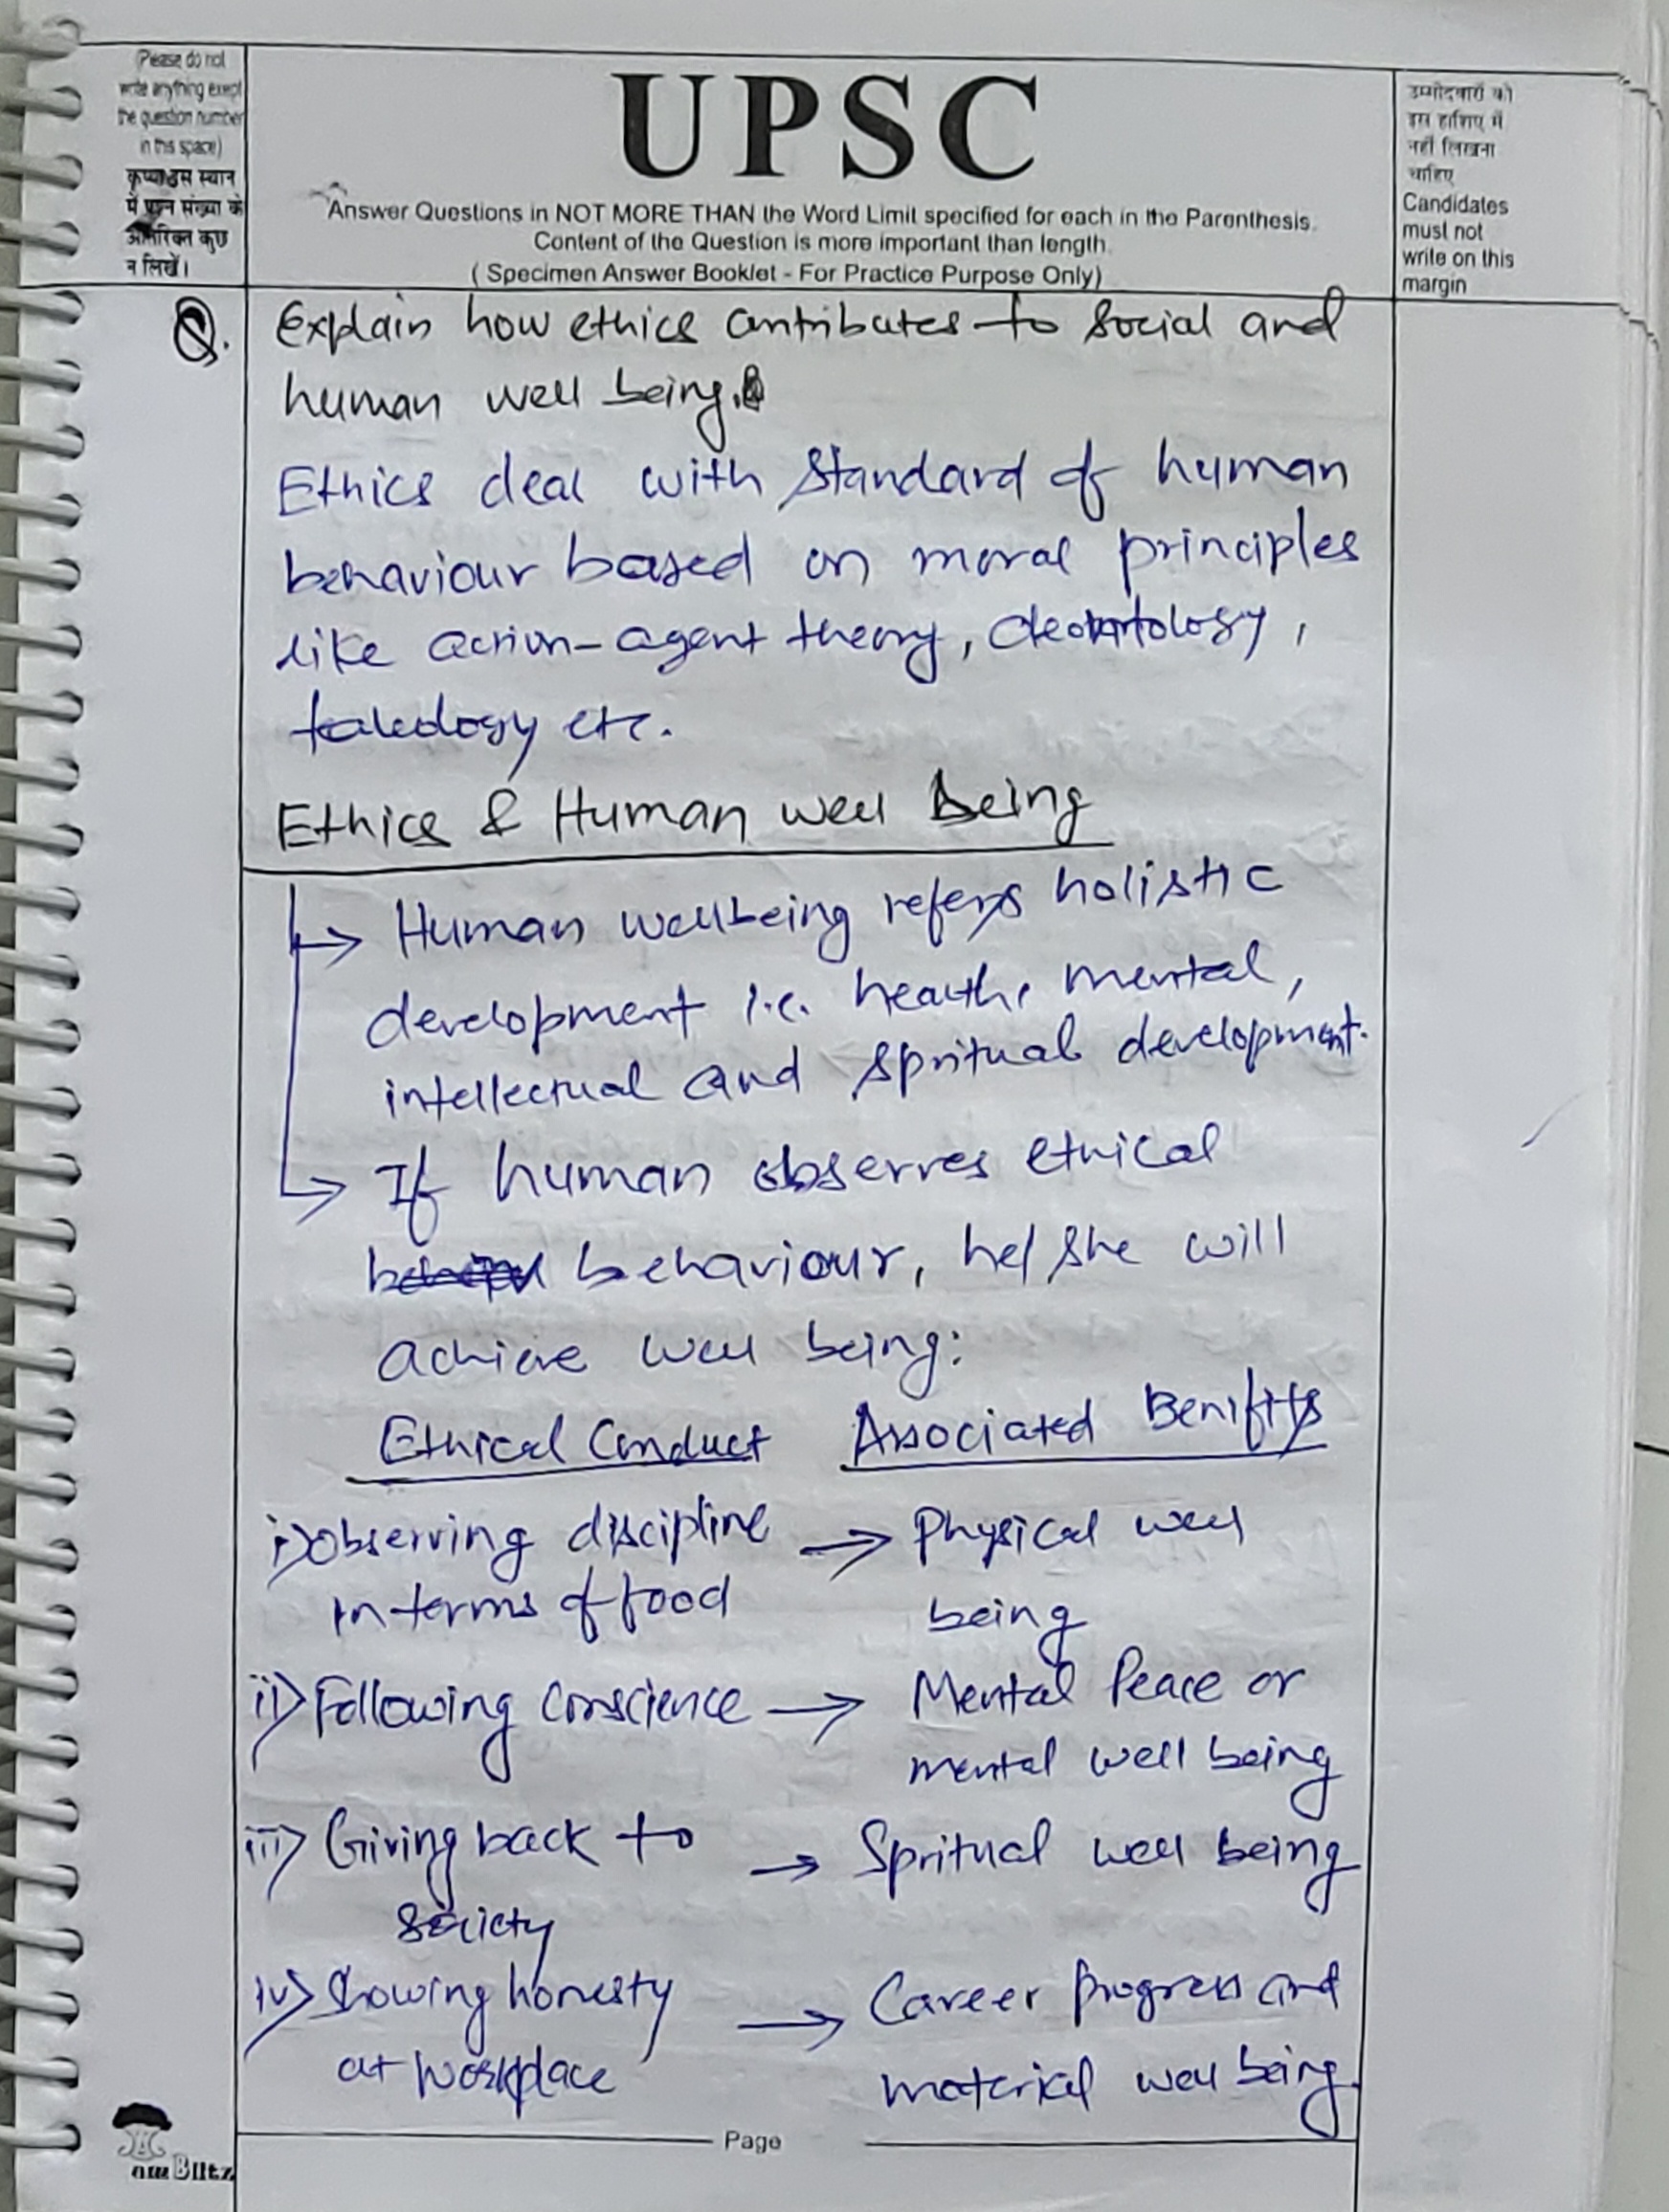 (Please do not
write anything exept
the question number
in this space)
कृप्या इस स्थान
में प्रश्न संख्या के
अतिरिक्त कुछ
न लिखें।
UPSC
Answer Questions in NOT MORE THAN the Word Limit specified for each in the Parenthesis.
Content of the Question is more important than length.
( Specimen Answer Booklet - For Practice Purpose Only)
उम्मीदवारों को
इस हाशिए में
नहीं लिखना
चाहिए
Candidates
must not
write on this
margin
Q. Explain how ethics contributes to social and
human well being.
Ethics deal with standard of human
behaviour based on moral principles
like action-agent theory, deontology,
teleology etc.
Ethics & Human well Being
→ Human wellbeing refers holistic
development i.e. health, mental,
intellectual and spritual development.
→ If human observes ethical
behaviour, he/she will
achieve well being:
Ethical Conduct Associated Benifits
i) Observing discipline → Physical well
in terms of food being
ii) Following conscience → Mental Peace or
mental well being
iii) Giving back to → Spritual well being
society
iv) Showing honesty → Career progress and
at workplace material well being.
Page
Blitz